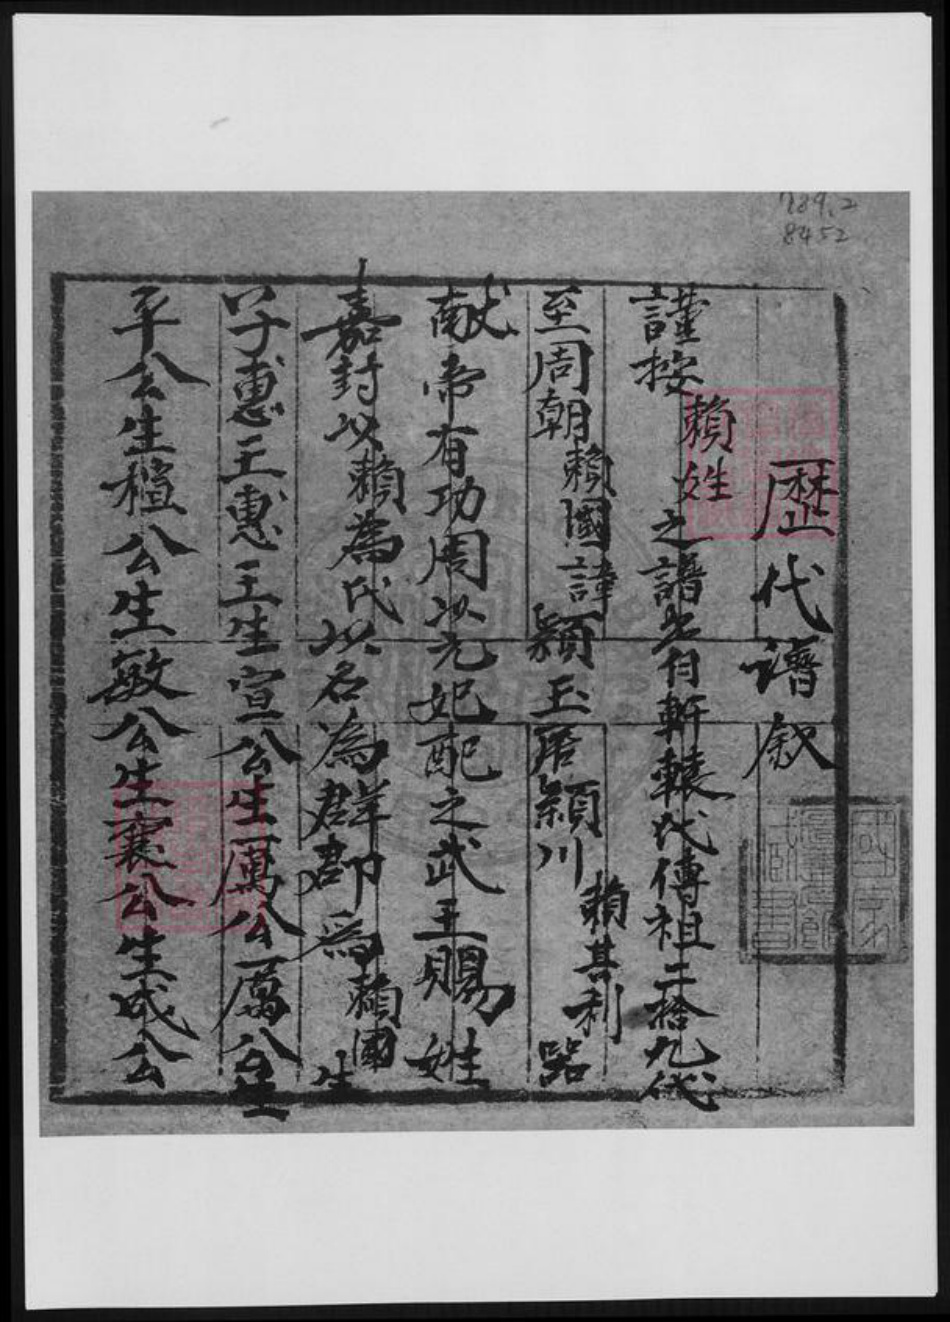 789.2
8452
歷代譜叙
謹按賴姓之譜先自軒轅代傳祖二拾九代
至周朝賴國諱穎玉居穎川賴甚利器
献帝有功周以元妃配之武王賜姓
嘉封以賴為氏以名為群郡為賴國生
子惠王惠王生宣公生厲公厲公生
平公生稙公生敏公生襄公生成公